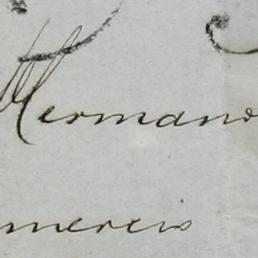 Hermano
mercio